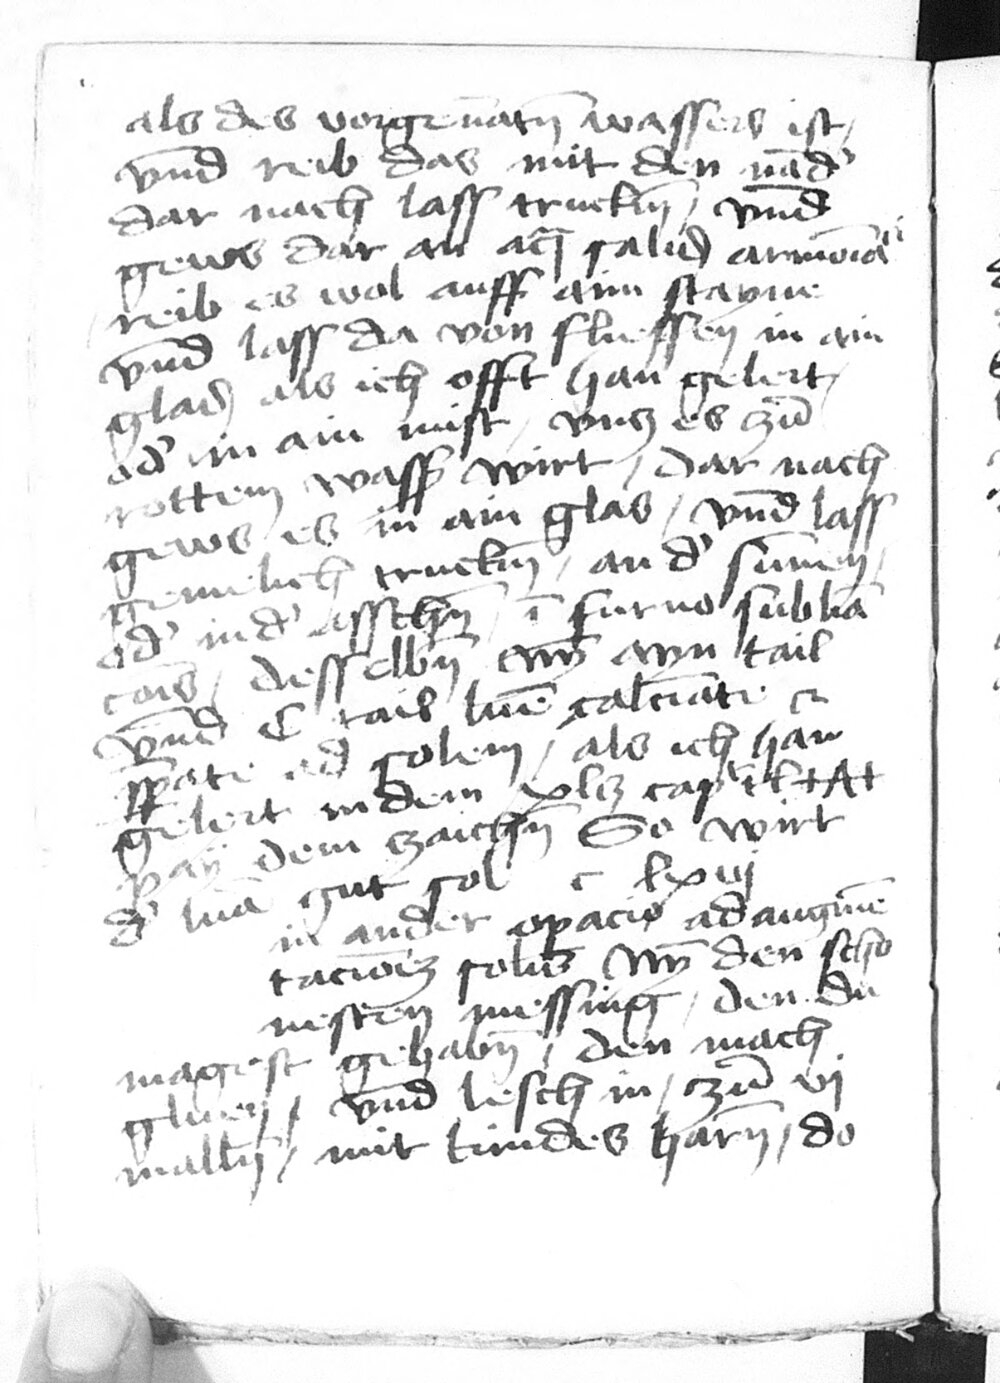 als des vorgenātn̄ wassers ist /
vnd reib das mit den nād'
dar nach lass truckn̄ / vnd
gews dar an aq̄ salis armoīa
reib es wol auff aim stayne
vnd lass da von fliessen in ain
glas als ich offt han gelert /
od' in ain mist / vncz es zū
rottem wass' wirt / dar nach
gews es in ain glas / vnd lass
gemelich truckn̄ / an d' sūnnen /
od' in d' asschn̄ / ī furno sublīa
cōis / desselbn̄ nym ayn tail
vnd C tail lune calcīate
ad solem / als ich han
gelert in dem capt
pay dem zaichn̄ So wirt
d' lūa gut sol c lxvij
in ander opacio ad augmē
tacōīs solis Nym den scho
nesten messing / den du
magest gehabn̄ / den mach
gluen / vnd lesch in / zū vj
malln̄ / mit kindes harn̄ / do